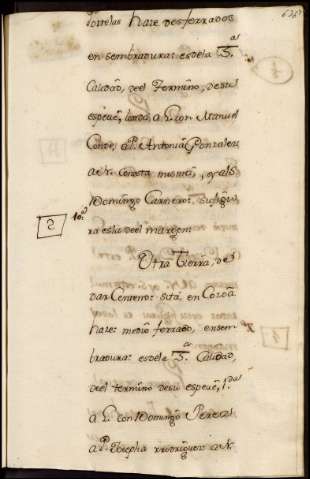 626
hace des ferrados
en sembradura: es de la 3.ª
Calidad, de el Termino, de su
especie, linda a L. con Manuel
Conde; a P. Antonia Gonzalez
a N. Consta mismo, y al S.
Domingo Carnero: su figu
ra es la de el margen
10.ª
Otra Tierra, de
dar Centeno: sita, en
hace: medio ferrado, ensem
bradura: es de la 3.ª Calidad,
de el termino de su especie, l.da
a L. con Domingo Perez al
a P. Josepha rrodriguez a N.